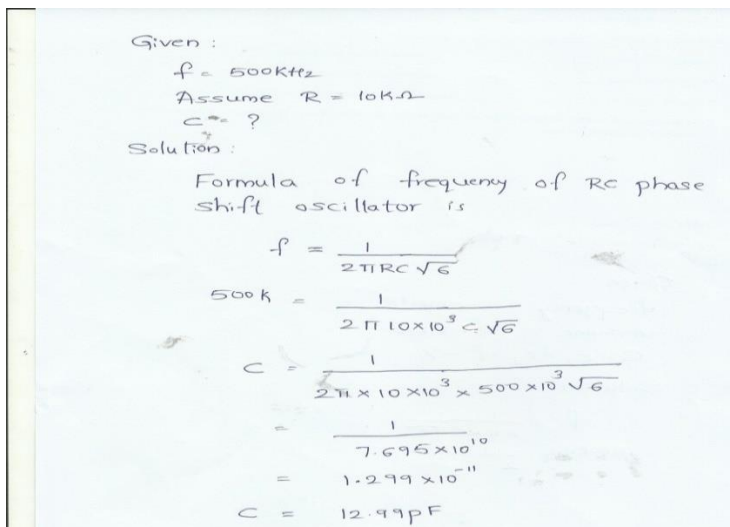 Given :
f = 500KHz
Assume R = 10KΩ
C = ?
Solution :
Formula of frequency of RC phase
shift oscillator is
f = 1 / 2πRC√6
500k = 1 / 2π 10×10³ C √6
C = 1 / 2π × 10 × 10³ × 500 × 10³ √6
= 1 / 7.695×10¹⁰
= 1.299 × 10⁻¹¹
C = 12.99pF